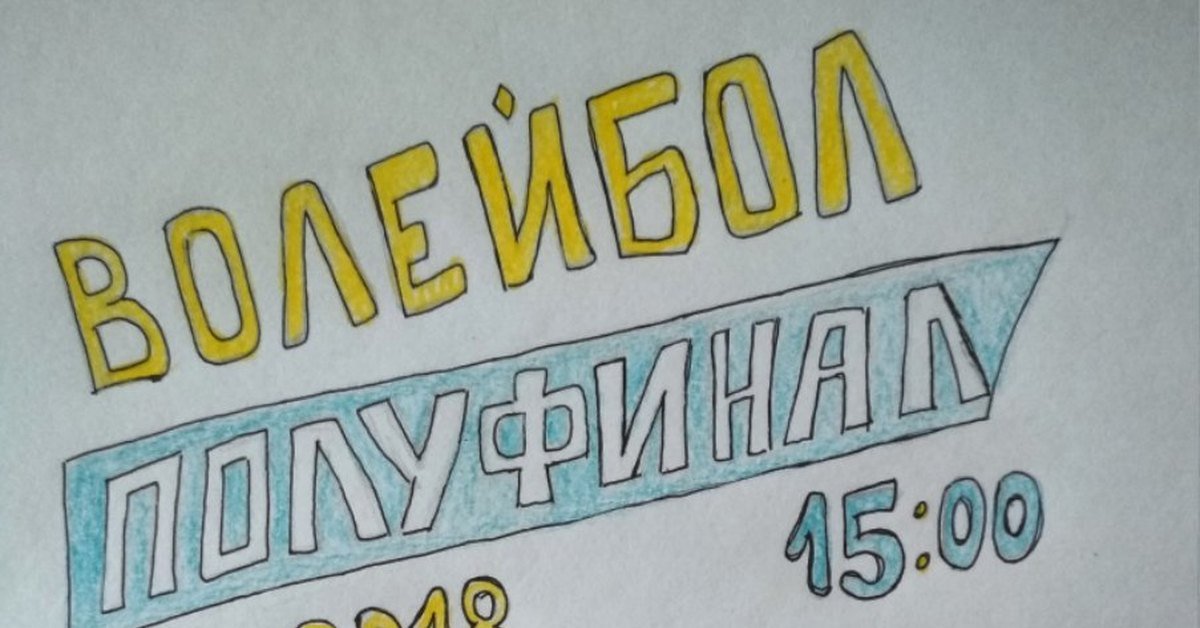 ВОЛЕЙБОЛ
ПОЛУФИНАЛ
15:00